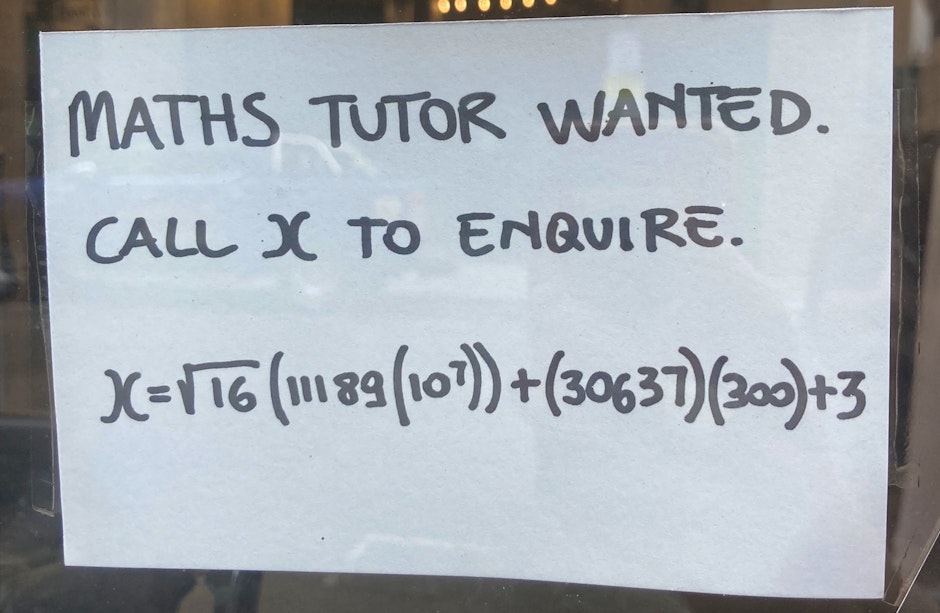 MATHS TUTOR WANTED.
CALL x TO ENQUIRE.
x=√16(11189(10⁷))+(30637)(300)+3